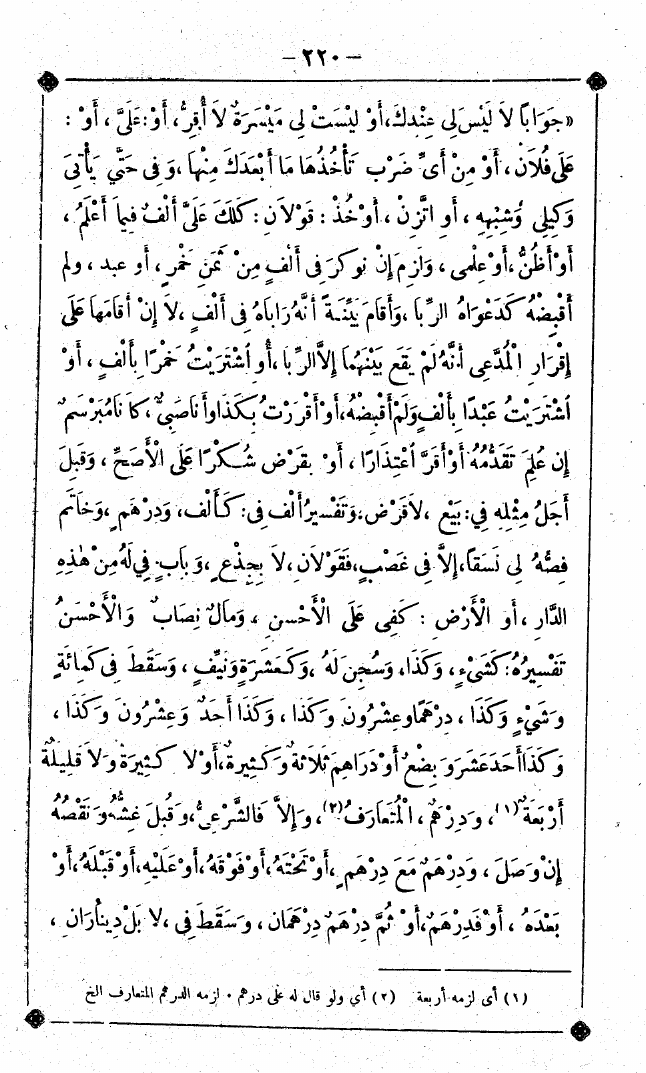 – ٢٢٠ –
«جَوَابًا لاَ لَيْسَ لِي عِنْدِكَ، أَوْ لَيْسَتْ لِي مَيْسَرَةٌ لاَ أُقِرُّ، أَوْ: عَلَىَّ، أَوْ :
عَلَى فُلاَنٍ، أَوْ مِنْ أَىِّ ضَرْبٍ تَأْخُذُهَا مَا أَبْعَدَكَ مِنْهَا، وَفِى حَتَّى يَأْتِىَ
وَكِيلِى وَشِبْهِهِ، أَوِ اتَّزِنْ، أَوْ خُذْ: قَوْلاَنِ: كَلَكَ عَلَىَّ أَلْفٌ فِيمَا أَعْلَمُ،
أَوْ أَظُنُّ، أَوْ عِلْمِى، وَلَزِمَ إِنْ نُوكِرَ فِى أَلْفٍ مِنْ ثَمَنِ خَمْرٍ، أَو عبد، ولم
أَقْبِضْهُ كَدَعْوَاهُ الرِّبَا، وَأَقَامَ بَيِّنَةً أَنَّهُ رَابَاهُ فِى أَلْفٍ، لاَ إِنْ أَقَامَهَا عَلَى
إِقْرَارِ الْمُدَّعِى أَنَّهُ لَمْ يَقَعْ بَيْنَهُمَا إِلاَّ الرِّبَا، أَوِ اشْتَرَيْتُ خَمْرًا بِأَلْفٍ، أَوْ
اشْتَرَيْتُ عَبْدًا بِأَلْفٍ وَلَمْ أَقْبِضْهُ، أَوْ أَقْرَرْتُ بِكَذَا وَأَنَا صَبِىٌّ، كَأَنَا مُبَرْسَمٌ
إِن عُلِمَ تَقَدُّمُهُ أَوْ أَقَرَّ اعْتِذَارًا، أَوْ بِقَرْضٍ شُكْرًا عَلَى الْأَصَحِّ، وَقُبِلَ
أَجَلُ مِثْلِهِ فِي: بَيْعٍ، لاَ قَرْضٍ، وَتَفْسِيرُ أَلْفٍ فِى: كَأَلْف، وَدِرْهَمٍ، وَخَاتَمٍ
فِصُّهُ لِى نَسَقًا، إِلاَّ فِى غَصْبٍ، فَقَوْلاَنِ، لاَ بِجِذْعٍ، وَبَابٍ فِي لَهُ مِنْ هٰذِهِ
الدَّارِ، أَوِ الْأَرْضِ: كَفِى عَلَى الْأَحْسَنِ، وَمَالٌ نِصَابٌ وَالْأَحْسَنُ
تَفْسِيرُهُ: كَشَىْءٍ، وَكَذَا، وَسُجِنَ لَهُ، وَكَعَشَرَةٍ وَنَيِّفٍ، وَسَقَطَ فِى كَمِائَةٍ
وَشَىْءٍ وَكَذَا، دِرْهَمًا وعِشْرُونَ وَكَذَا، وَكَذَا أَحَدٌ وَعِشْرُونَ وَكَذَا،
وَكَذَا أَحَدَ عَشَرَ وَ بِضْعٌ أَوْ دَرَاهِمُ ثَلاَثَةٌ وَكَثِيرَةٌ، أَوْ لاَ كَثِيرَةٌ وَلاَ قَلِيلَةٌ
أَرْبَعَةٌ (١)، وَدِرْهَمٌ، الْمُتَعَارَفُ (٢)، وَإِلاَّ فَالشَّرْعِىُّ، وَقُبِلَ غِشُّهُ وَنَقْصُهُ
إِنْ وَصَلَ، وَدِرْهَمٌ مَعَ دِرْهَمٍ، أَوْ تَحْتَهُ، أَوْ فَوْقَهُ، أَوْ عَلَيْهِ، أَوْ قَبْلَهُ، أَوْ
بَعْدَهُ، أَوْ فَدِرْهَمٌ، أَوْ ثُمَّ دِرْهَمٌ دِرْهَمَانِ، وَسَقَطَ فِى، لاَ بَلْ دِينَارَانِ،
(١) أى لزمه أربعة (٢) أي ولو قال له على درهم . لزمه الدرهم المتعارف الخ